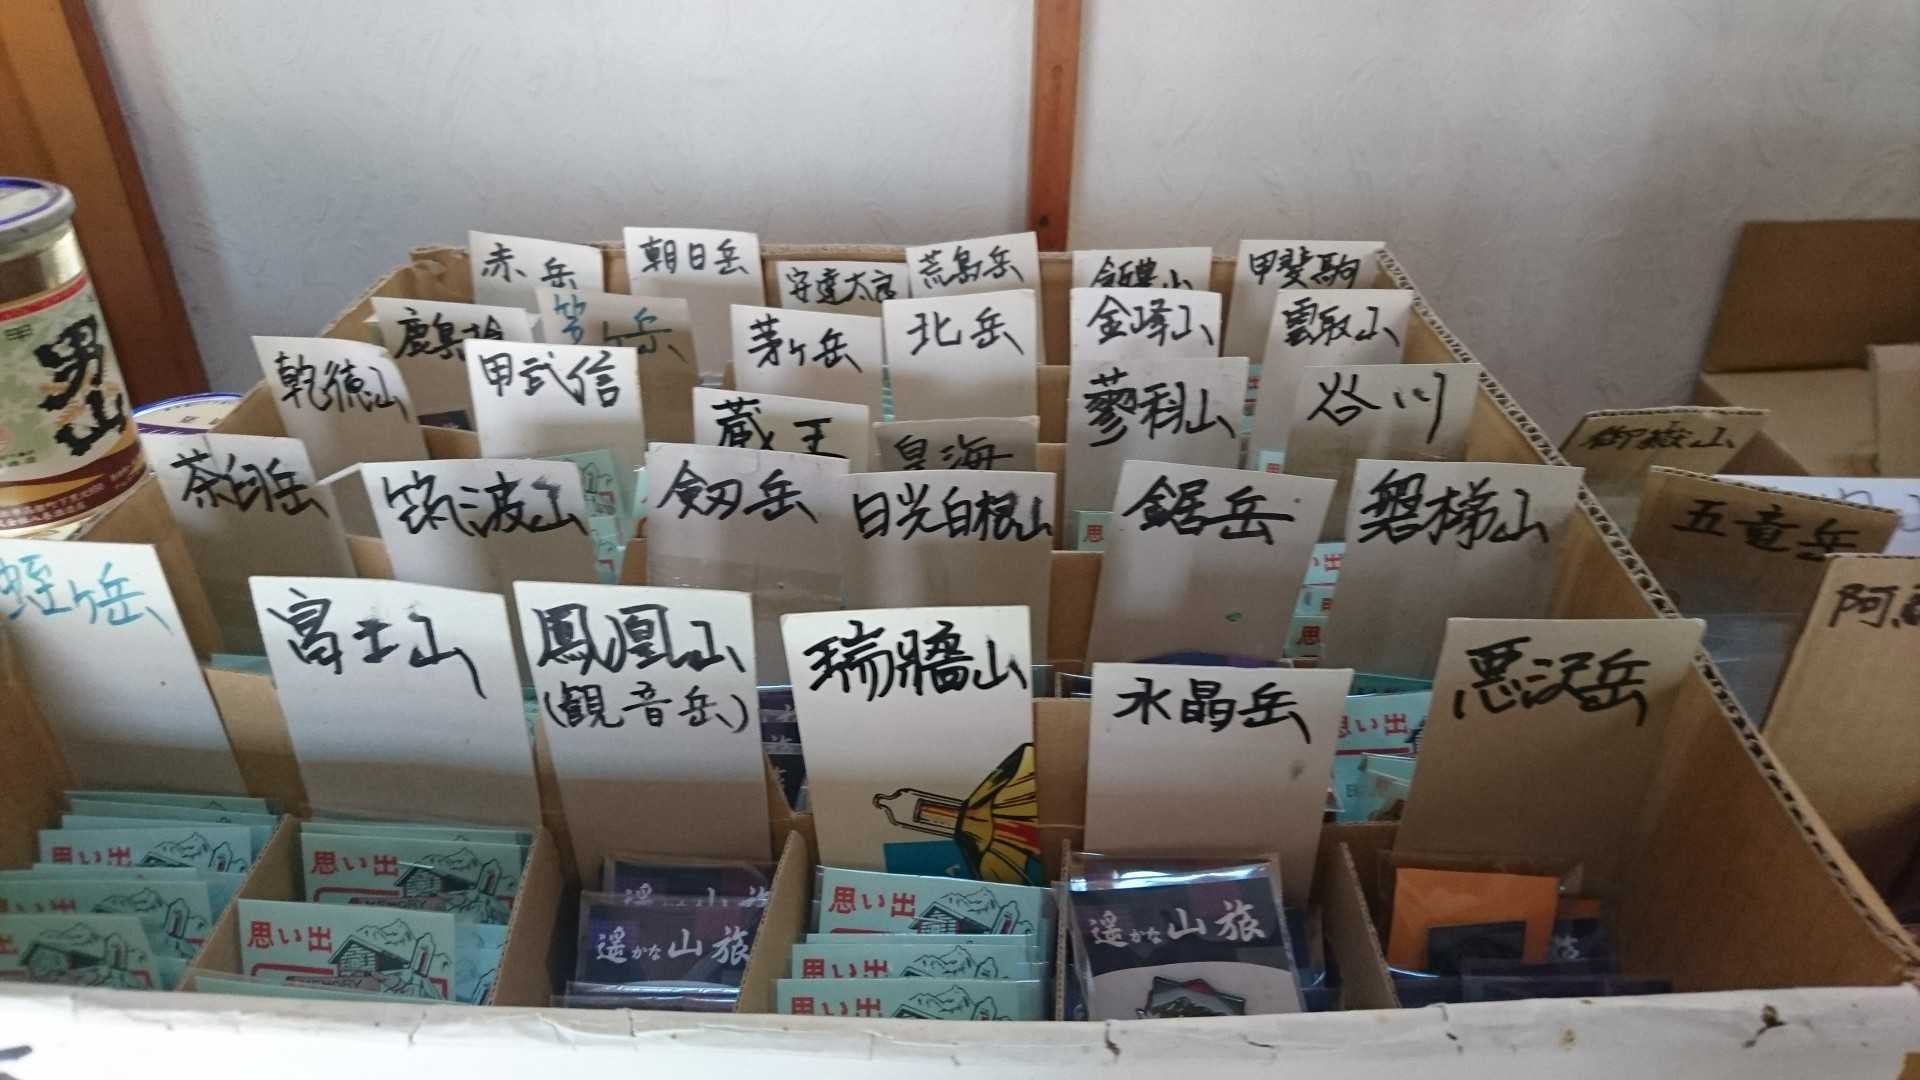 赤岳
朝日岳
安達太良
荒島岳
甲斐駒
鹿島槍
笠ヶ岳
茅ヶ岳
北岳
金峰山
雲取山
乾徳山
甲武信
蔵王
皇海
蓼科山
谷川
御嶽山
茶臼岳
筑波山
剱岳
日光白根山
鋸岳
磐梯山
五竜岳
蛭ヶ岳
富士山
鳳凰山
(観音岳)
瑞牆山
水晶岳
悪沢岳
阿
男山
思い出
思い出
思い出
思い出
MEMORY
思い出
思い出
思い出
遥かな山旅
遥かな山旅
遥かな山旅